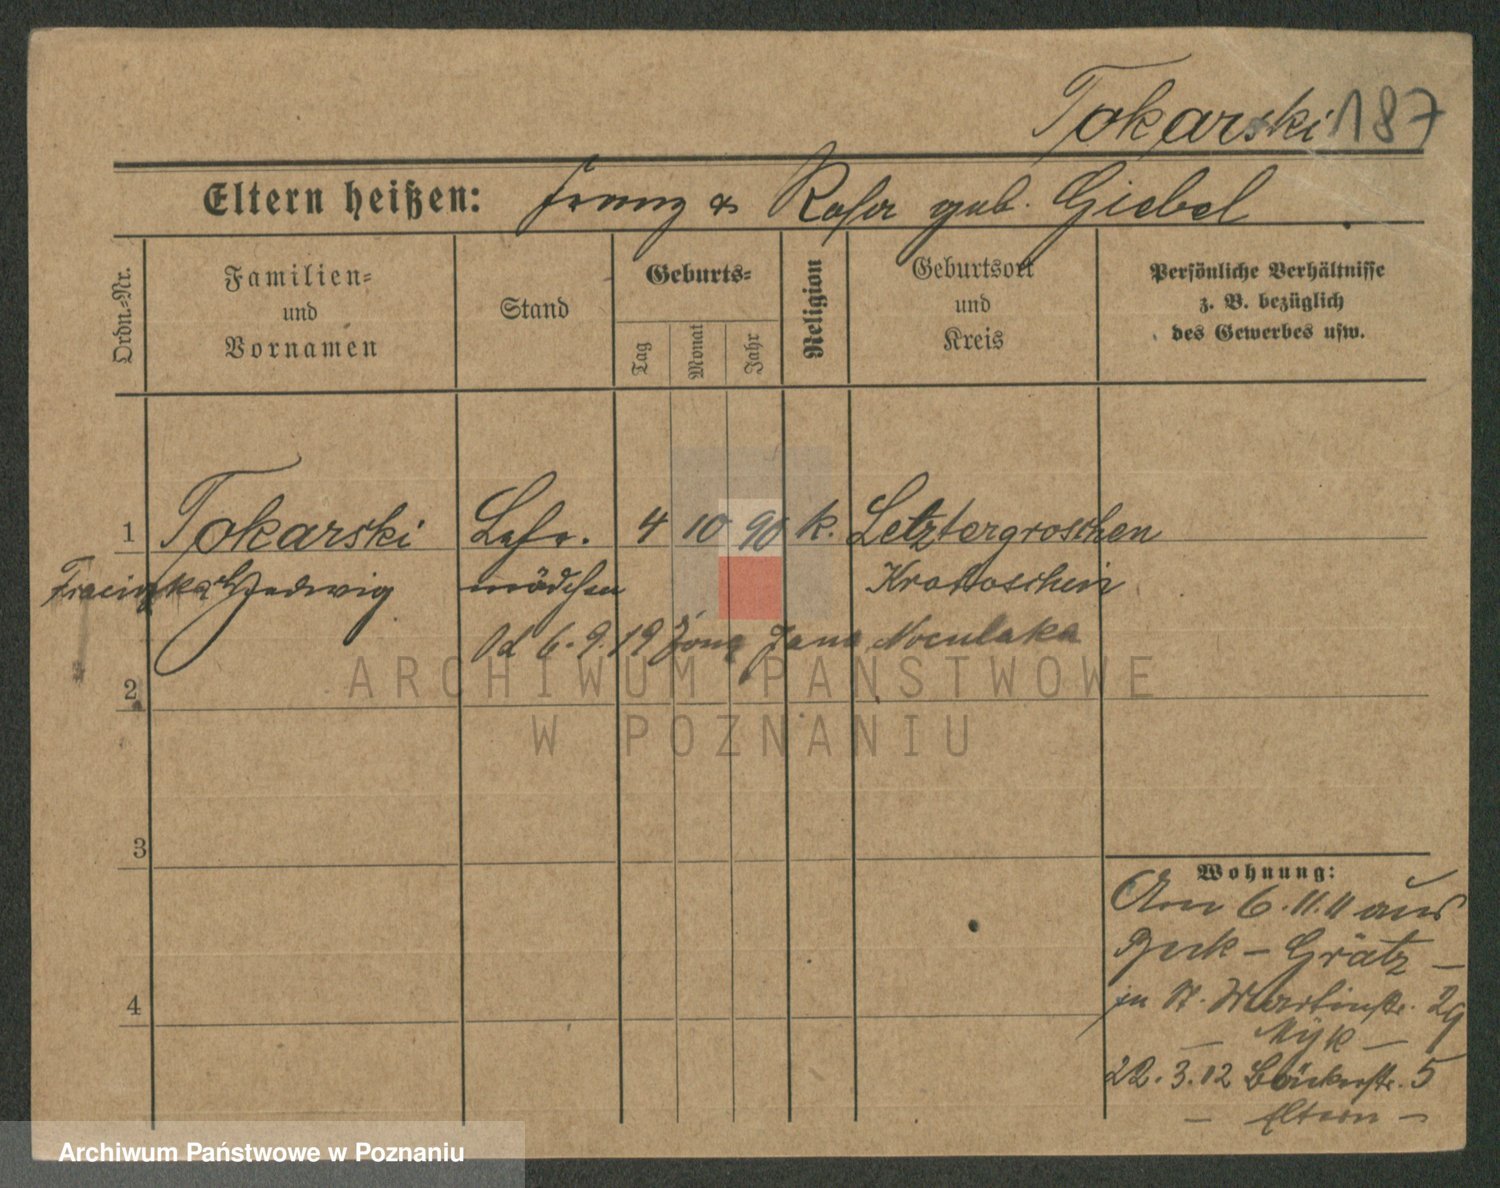 Tokarski 187
Eltern heißen: Franz & Rosa geb. Giebel
Ordn.-Nr.
Familien-
und
Vornamen
Stand
Geburts-
Tag
Monat
Jahr
Religion
Geburtsort
und
Kreis
Persönliche Verhältnisse
z. B. bezüglich
des Gewerbes usw.
1 Tokarski Lehr. 4 10 90 k. Letztergroschen
Hedwig mädchen Krotoschin
Od 6.9.19 żona Jana
ARCHIWUM PAŃSTWOWE
W POZNANIU
2
3
4
Wohnung:
Am 6.11.11 aus
Buk - Grätz -
in St. Martinstr. 29
- Myk -
22.3.12 Bäckerstr. 5
- Eltern -
Archiwum Państwowe w Poznaniu